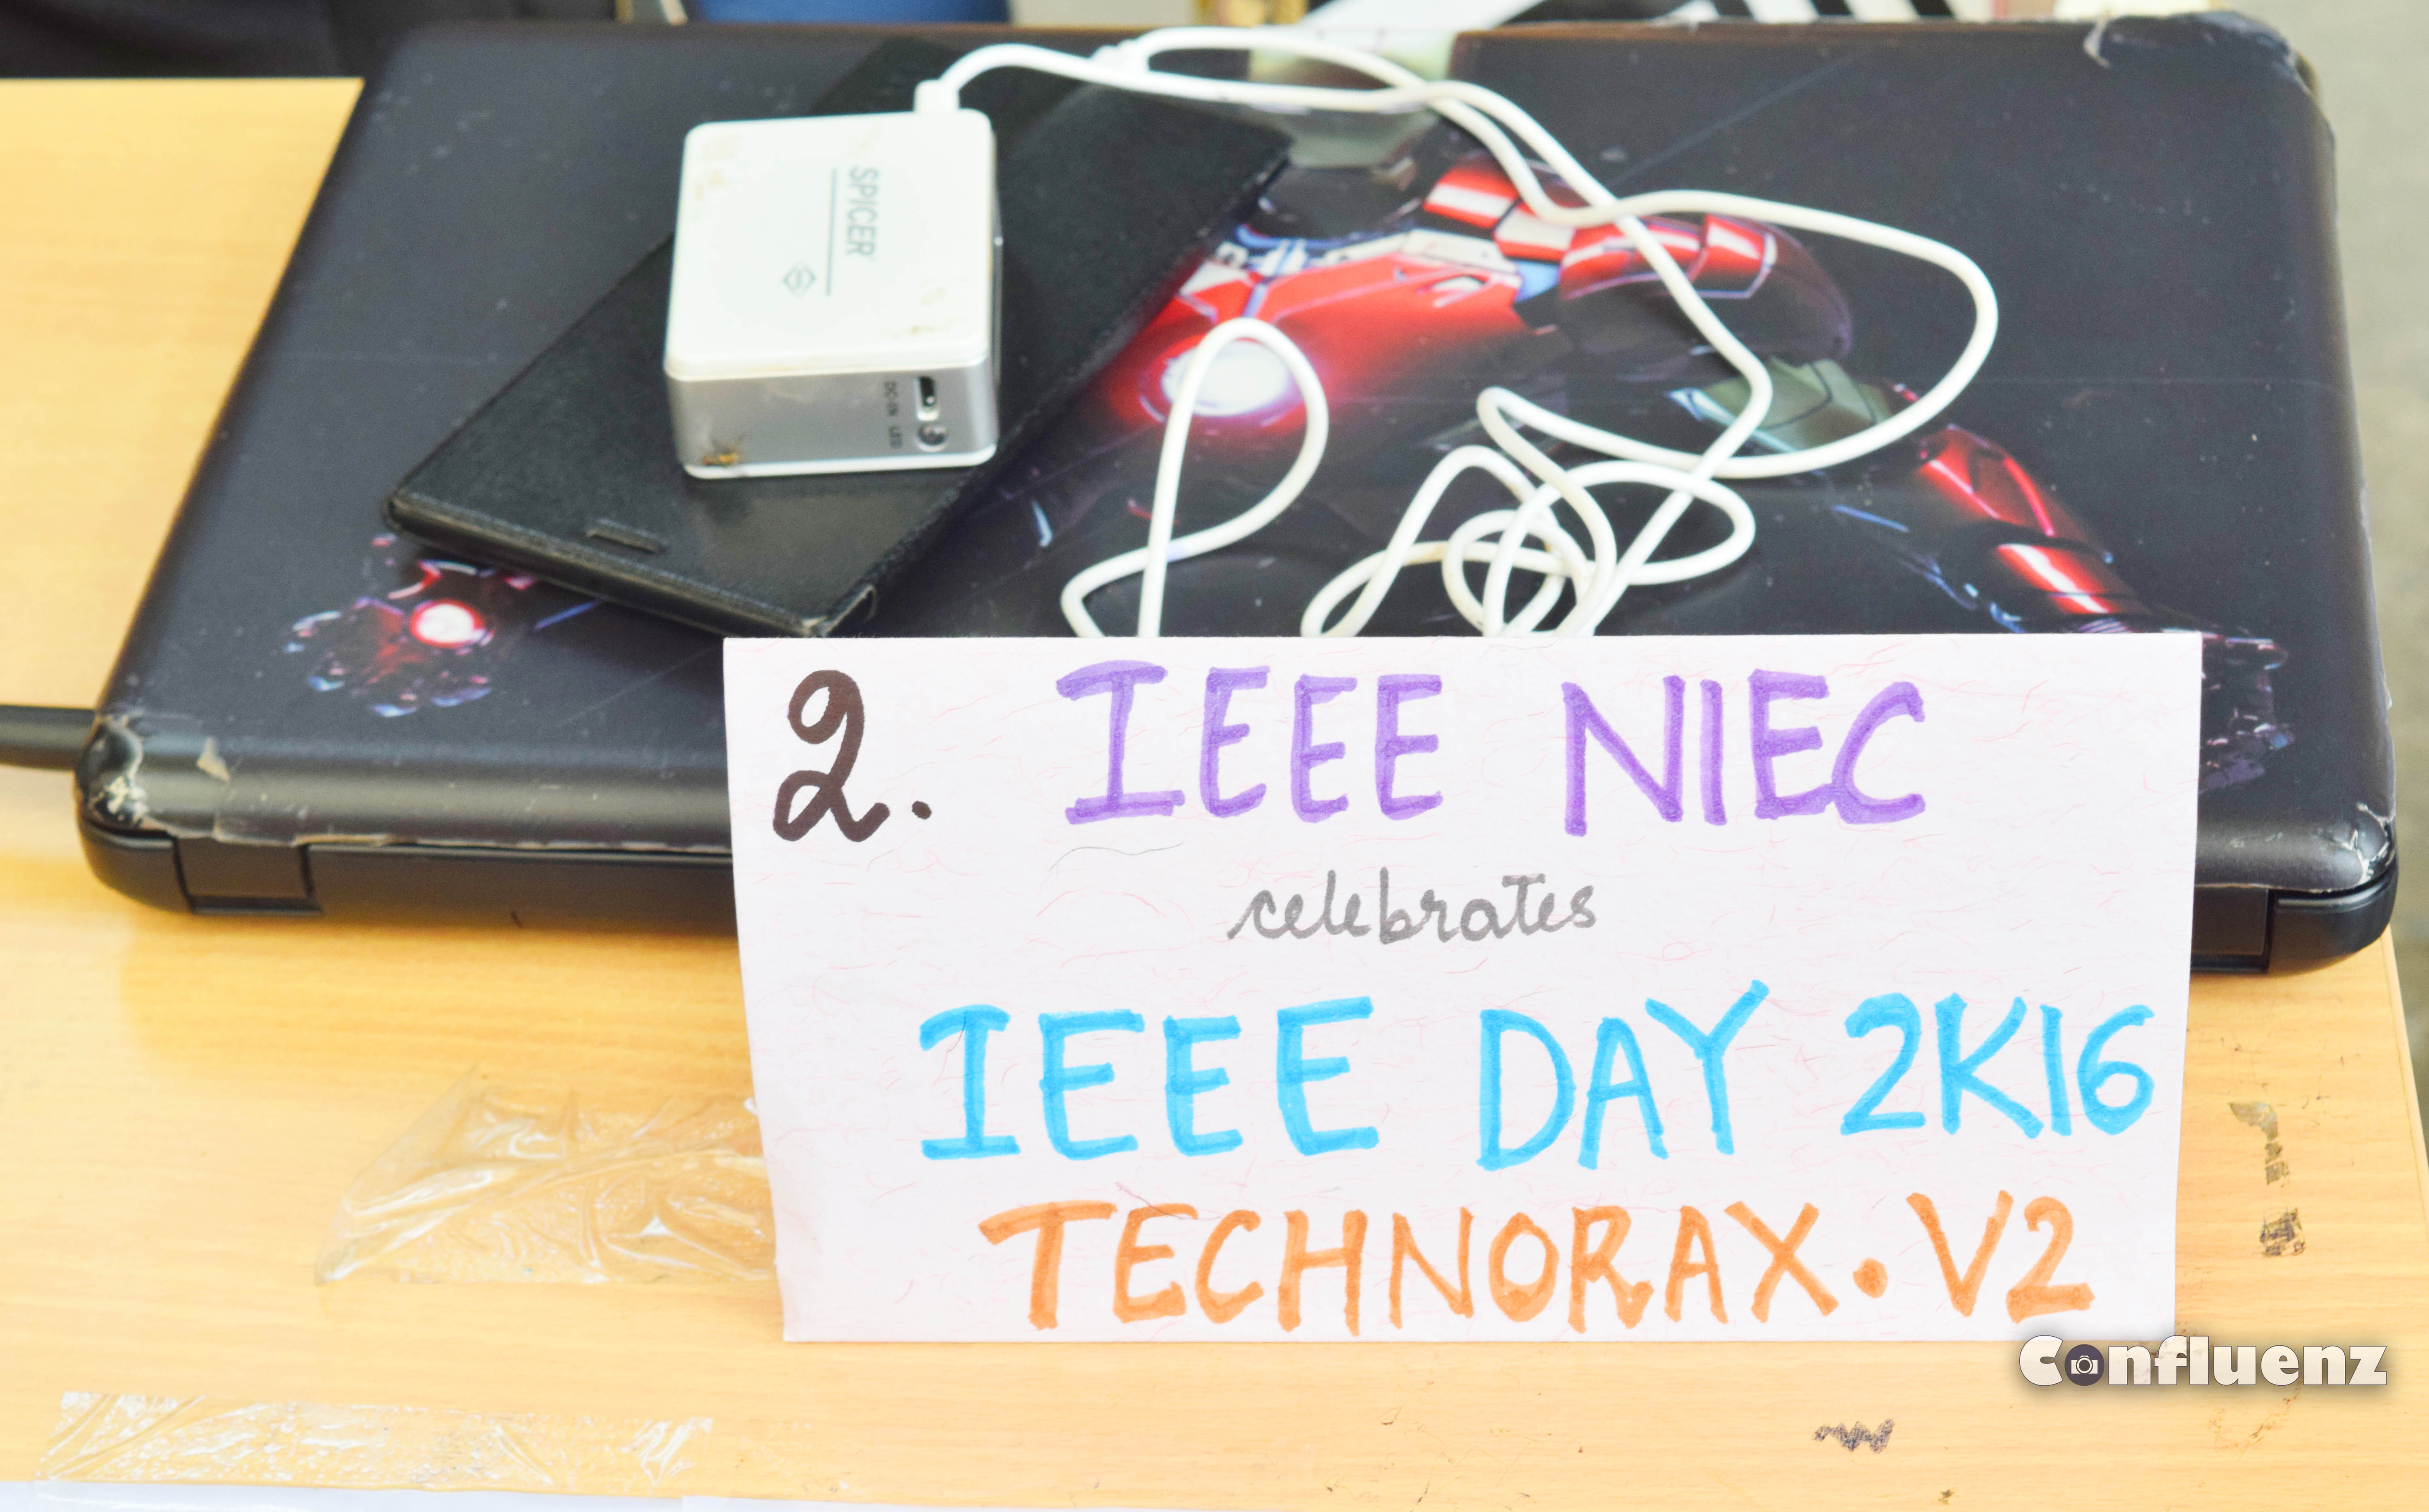 SPICER
DC-IN LED
2. IEEE NIEC
celebrates
IEEE DAY 2K16
TECHNORAX.V2
Confluenz